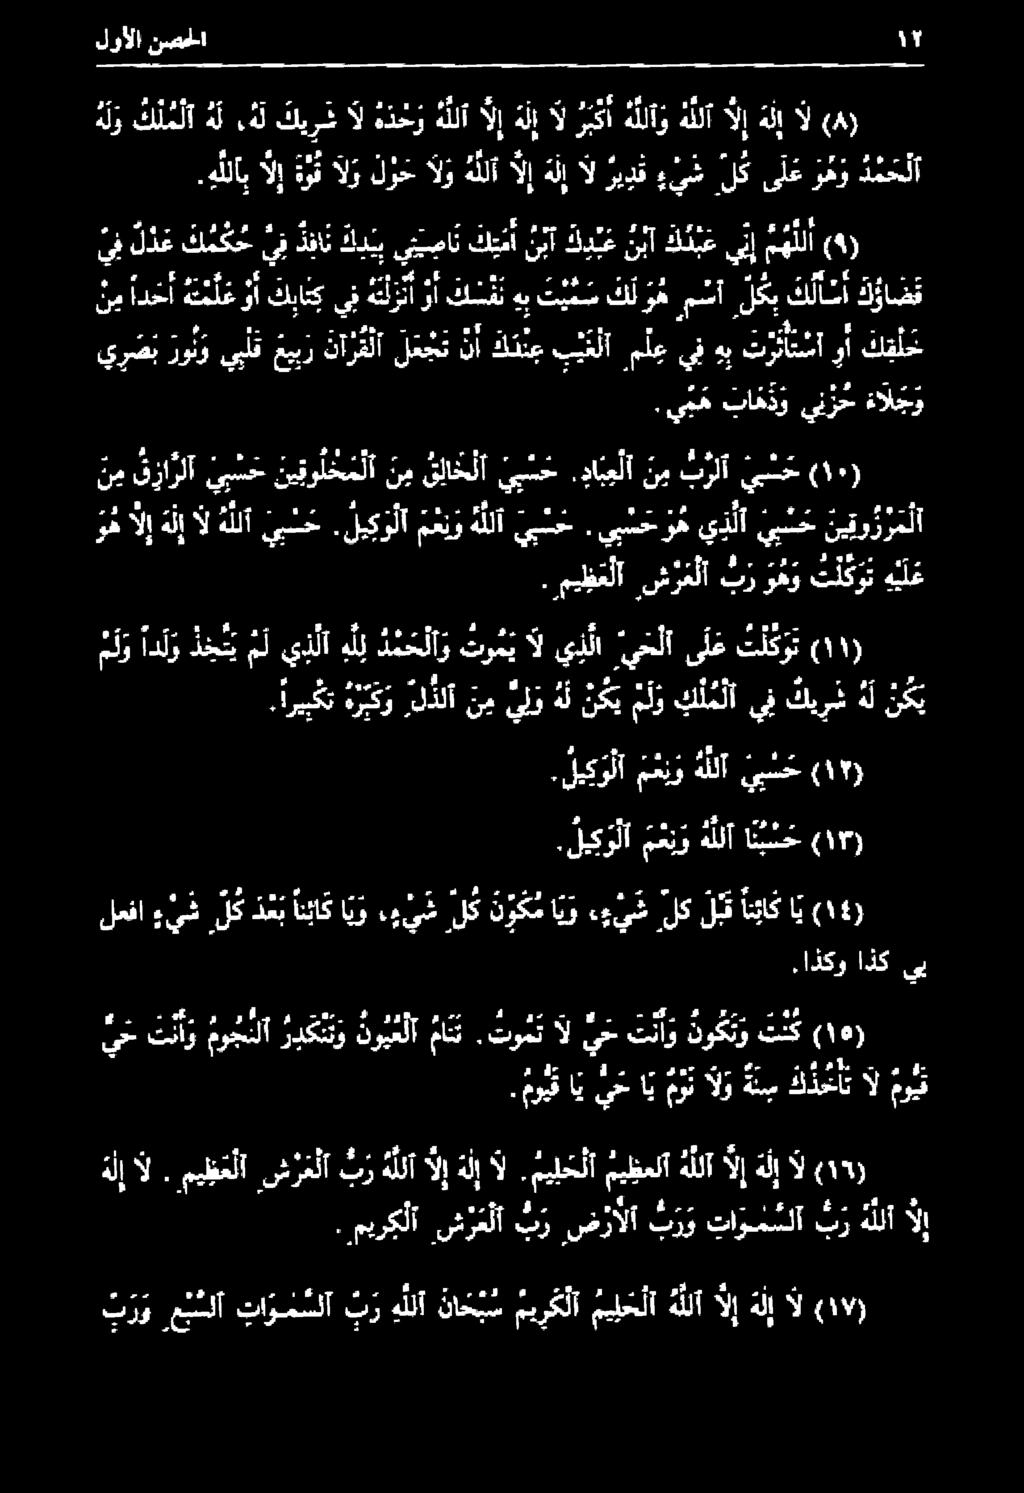 ١٢ الحصن الأول
(٨) لَا إِلٰهَ إِلَّا ٱللَّهُ وَٱللَّهُ أَكْبَرُ لَا إِلٰهَ إِلَّا ٱللَّهُ وَحْدَهُ لَا شَرِيكَ لَهُ، لَهُ ٱلْمُلْكُ وَلَهُ
ٱلْحَمْدُ وَهُوَ عَلَى كُلِّ شَيْءٍ قَدِيرٌ لَا إِلٰهَ إِلَّا ٱللَّهُ وَلَا حَوْلَ وَلَا قُوَّةَ إِلَّا بِٱللَّهِ.
(٩) أَللَّهُمَّ إِنِّي عَبْدُكَ ٱبْنُ عَبْدِكَ ٱبْنُ أَمَتِكَ نَاصِيَتِي بِيَدِكَ نَافِذٌ فِيَّ حُكْمُكَ عَدْلٌ فِيَّ
قَضَاؤُكَ أَسْأَلُكَ بِكُلِّ ٱسْمٍ هُوَ لَكَ سَمَّيْتَ بِهِ نَفْسَكَ أَوْ أَنْزَلْتَهُ فِي كِتَابِكَ أَوْ عَلَّمْتَهُ أَحَداً مِنْ
خَلْقِكَ أَوِ ٱسْتَأْثَرْتَ بِهِ فِي عِلْمِ ٱلْغَيْبِ عِنْدَكَ أَنْ تَجْعَلَ ٱلْقُرْآنَ رَبِيعَ قَلْبِي وَنُورَ بَصَرِي
وَجَلَاءَ حُزْنِي وَذَهَابَ هَمِّي.
(١٠) حَسْبِيَ ٱلرَّبُّ مِنَ ٱلْعِبَادِ. حَسْبِيَ ٱلْخَالِقُ مِنَ ٱلْمَخْلُوقِينَ حَسْبِيَ ٱلرَّازِقُ مِنَ
ٱلْمَرْزُوقِينَ حَسْبِيَ ٱلَّذِي هُوَ حَسْبِي. حَسْبِيَ ٱللَّهُ وَنِعْمَ ٱلْوَكِيلُ. حَسْبِيَ ٱللَّهُ لَا إِلٰهَ إِلَّا هُوَ
عَلَيْهِ تَوَكَّلْتُ وَهُوَ رَبُّ ٱلْعَرْشِ ٱلْعَظِيمِ.
(١١) تَوَكَّلْتُ عَلَى ٱلْحَيِّ ٱلَّذِي لَا يَمُوتُ وَٱلْحَمْدُ لِلَّهِ ٱلَّذِي لَمْ يَتَّخِذْ وَلَداً وَلَمْ
يَكُنْ لَهُ شَرِيكٌ فِي ٱلْمُلْكِ وَلَمْ يَكُنْ لَهُ وَلِيٌّ مِنَ ٱلذُّلِّ وَكَبِّرْهُ تَكْبِيراً.
(١٢) حَسْبِيَ ٱللَّهُ وَنِعْمَ ٱلْوَكِيلُ.
(١٣) حَسْبُنَا ٱللَّهُ وَنِعْمَ ٱلْوَكِيلُ.
(١٤) يَا كَائِناً قَبْلَ كلِّ شَيْءٍ، وَيَا مُكَوِّنَ كُلِّ شَيْءٍ، وَيَا كَائِناً بَعْدَ كُلِّ شَيْءٍ افعل
بي كذا وكذا.
(١٥) كُنْتَ وَتَكُونُ وَأَنْتَ حَيٌّ لَا تَمُوتُ. تَنَامُ ٱلْعُيُونُ وَتَنْكَدِرُ ٱلنُّجُومُ وَأَنْتَ حَيٌّ
قَيُّومٌ لَا تَأْخُذُكَ سِنَةٌ وَلَا نَوْمٌ يَا حَيُّ يَا قَيُّومُ.
(١٦) لَا إِلٰهَ إِلَّا ٱللَّهُ ٱلعظِيمُ ٱلْحَلِيمُ. لَا إِلٰهَ إِلَّا ٱللَّهُ رَبُّ ٱلْعَرْشِ ٱلْعَظِيمِ. لَا إِلٰهَ
إِلَّا ٱللَّهُ رَبُّ ٱلسَّمٰوَاتِ وَرَبُّ ٱلْأَرْضِ رَبُّ ٱلْعَرْشِ ٱلْكَرِيمِ.
(١٧) لَا إِلٰهَ إِلَّا ٱللَّهُ ٱلْحَلِيمُ ٱلْكَرِيمُ سُبْحَانَ ٱللَّهِ رَبِّ ٱلسَّمٰوَاتِ ٱلسَّبْعِ وَرَبِّ